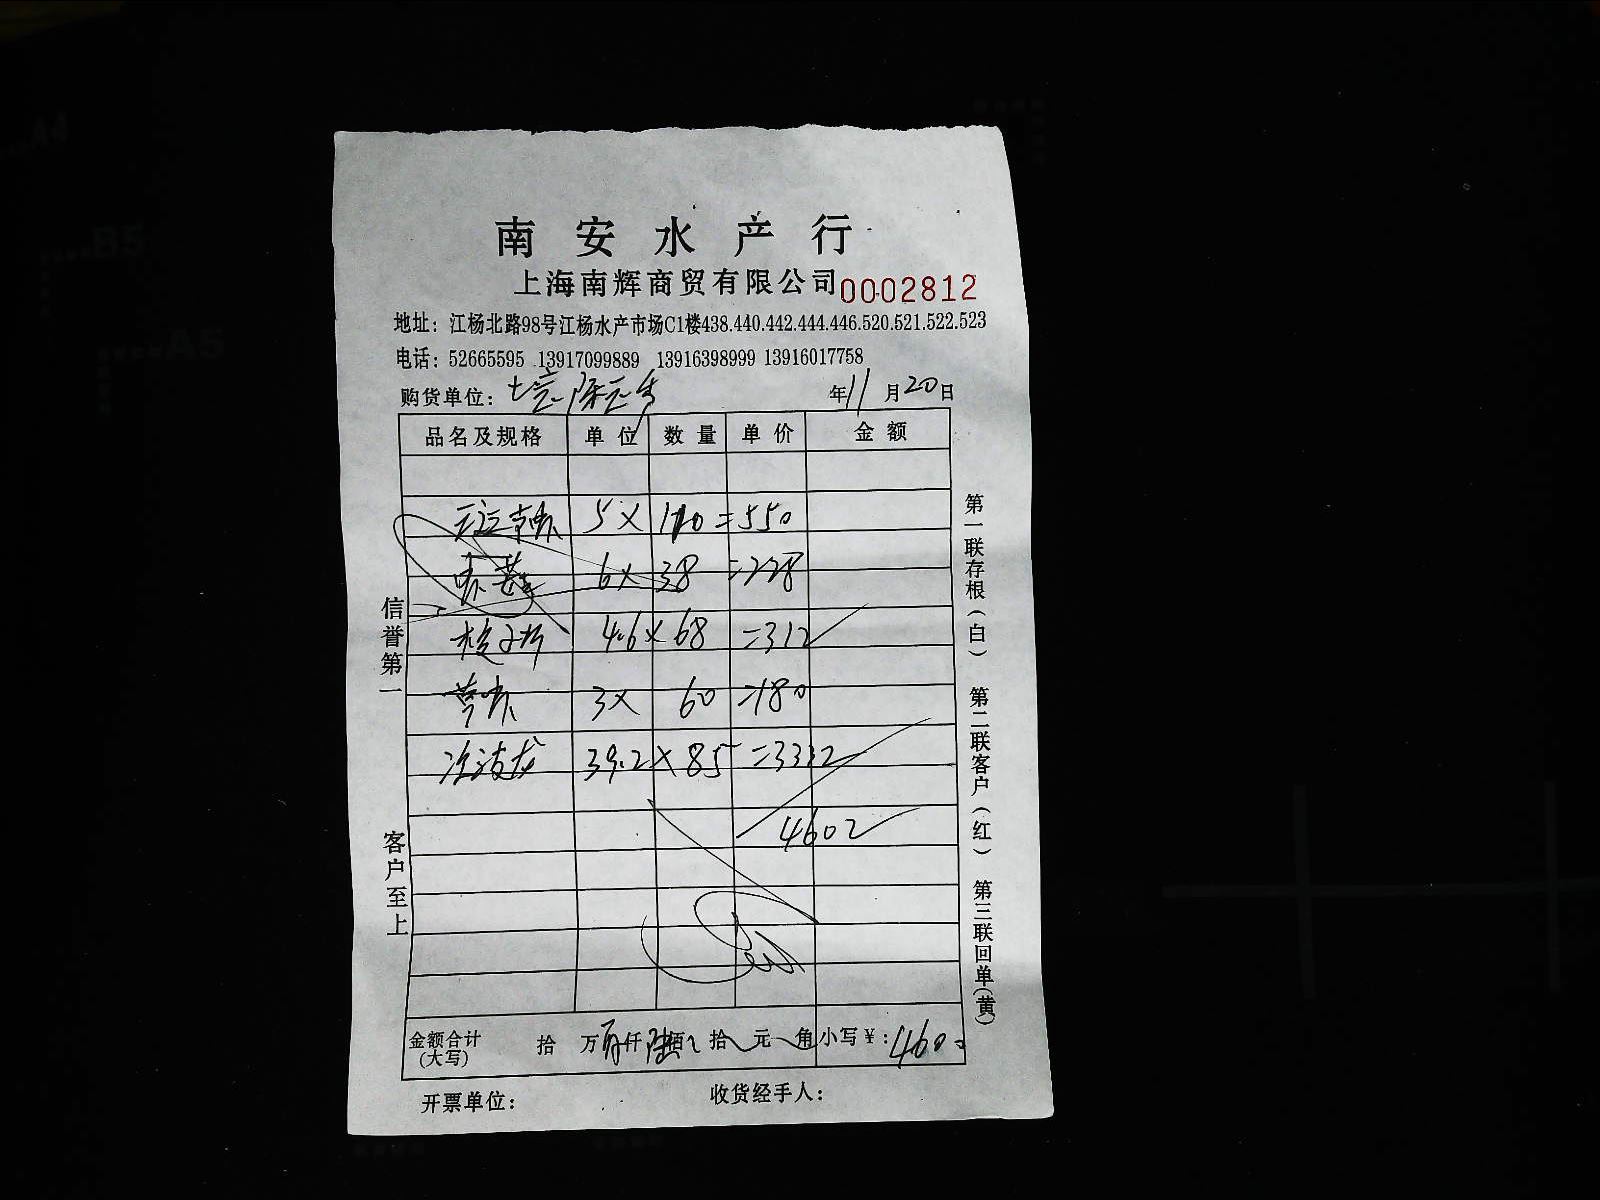 南安水产行
上海南辉商贸有限公司 0002812
地址：江杨北路98号江杨水产市场C1楼438.440.442.444.446.520.521.522.523
电话：52665595 13917099889 13916398999 13916017758
购货单位： 年11月20日
品名及规格 单位 数量 单价 金额
5× 110 =550
6× 38 =228
4.6× 68 =312
草虾 3× 60 =180
39.2× 85 =3332
4602
金额合计(大写) 拾 万 仟陆佰 拾 元 角 小写￥：4600
开票单位： 收货经手人：
信誉第一
客户至上
第一联存根(白) 第二联客户(红) 第三联回单(黄)